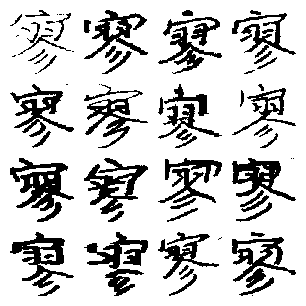 寥寥寥寥
寥寥寥寥
寥寥寥寥
寥寥寥寥